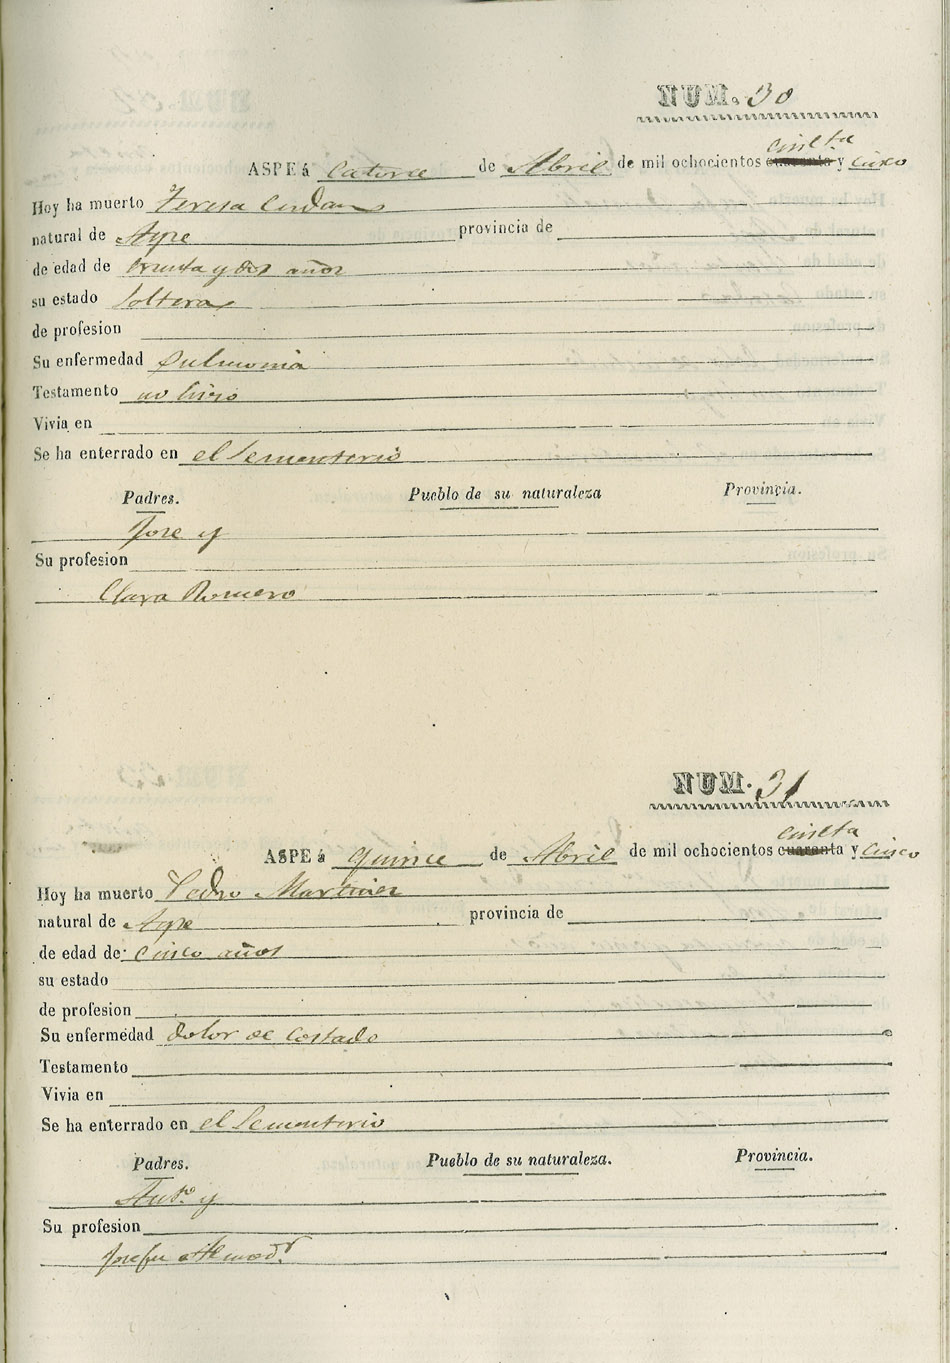 NUM. 30
ASPE á Catorce de Abril de mil ochocientos cuarenta cincta y cinco
Hoy ha muerto Teresa Cerdan
natural de Aspe provincia de
de edad de trenta y dos años
su estado Soltera
de profesion
Su enfermedad Pulmonia
Testamento no hiso
Vivia en
Se ha enterrado en el Sementerio
Padres. Pueblo de su naturaleza Provincia.
Jose y
Su profesion
Clara Romero
NUM. 31
ASPE á quince de Abril de mil ochocientos cuarenta cincta y cinco
Hoy ha muerto Pedro Martinez
natural de Aspe provincia de
de edad de cinco años
su estado
de profesion
Su enfermedad dolor de costado
Testamento
Vivia en
Se ha enterrado en el Sementerio
Padres. Pueblo de su naturaleza. Provincia.
Anto. y
Su profesion
Josefa